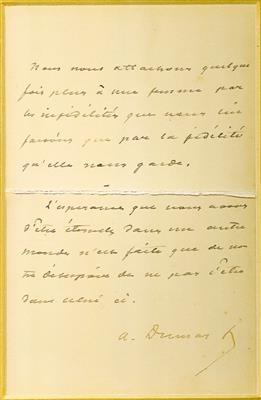 Nous nous attachons quelque
fois plus à une femme par
les infidélités que nous lui
faisons que par la fidélité
qu'elle nous garde.
L'espérance que nous avons
d'être éternels dans un autre
monde n'est faite que de no
tre désespoir de ne pas l'être
dans celui ci.
A. Dumas f